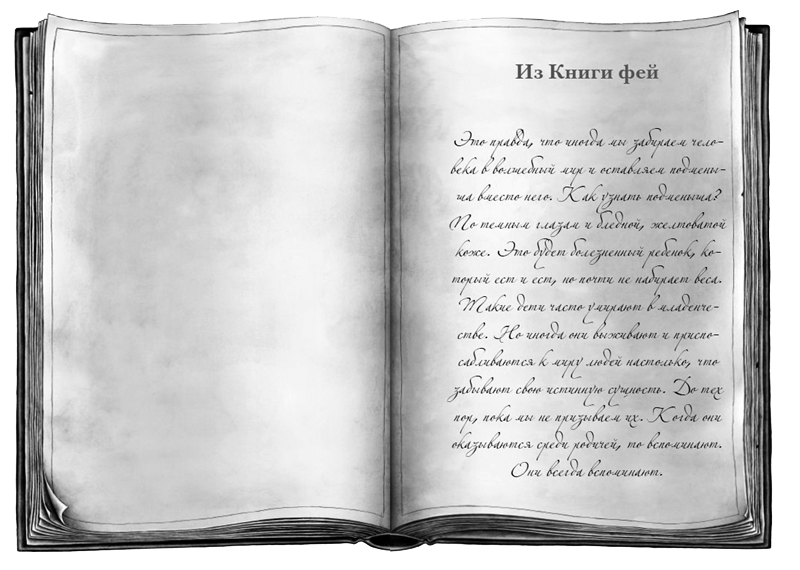 Из Книги фей
Это правда, что иногда мы забираем чело-
века в волшебный мир и оставляем подмены-
ша вместо него. Как узнать подменыша?
По темным глазам и бледной, желтоватой
коже. Это будет болезненный ребенок, ко-
торый ест и ест, но почти не набирает веса.
Такие дети часто умирают в младенче-
стве. Но иногда они выживают и приспо-
сабливаются к миру людей настолько, что
забывают свою истинную сущность. До тех
пор, пока мы не призываем их. Когда они
оказываются среди родичей, то вспоминают.
Они всегда вспоминают.